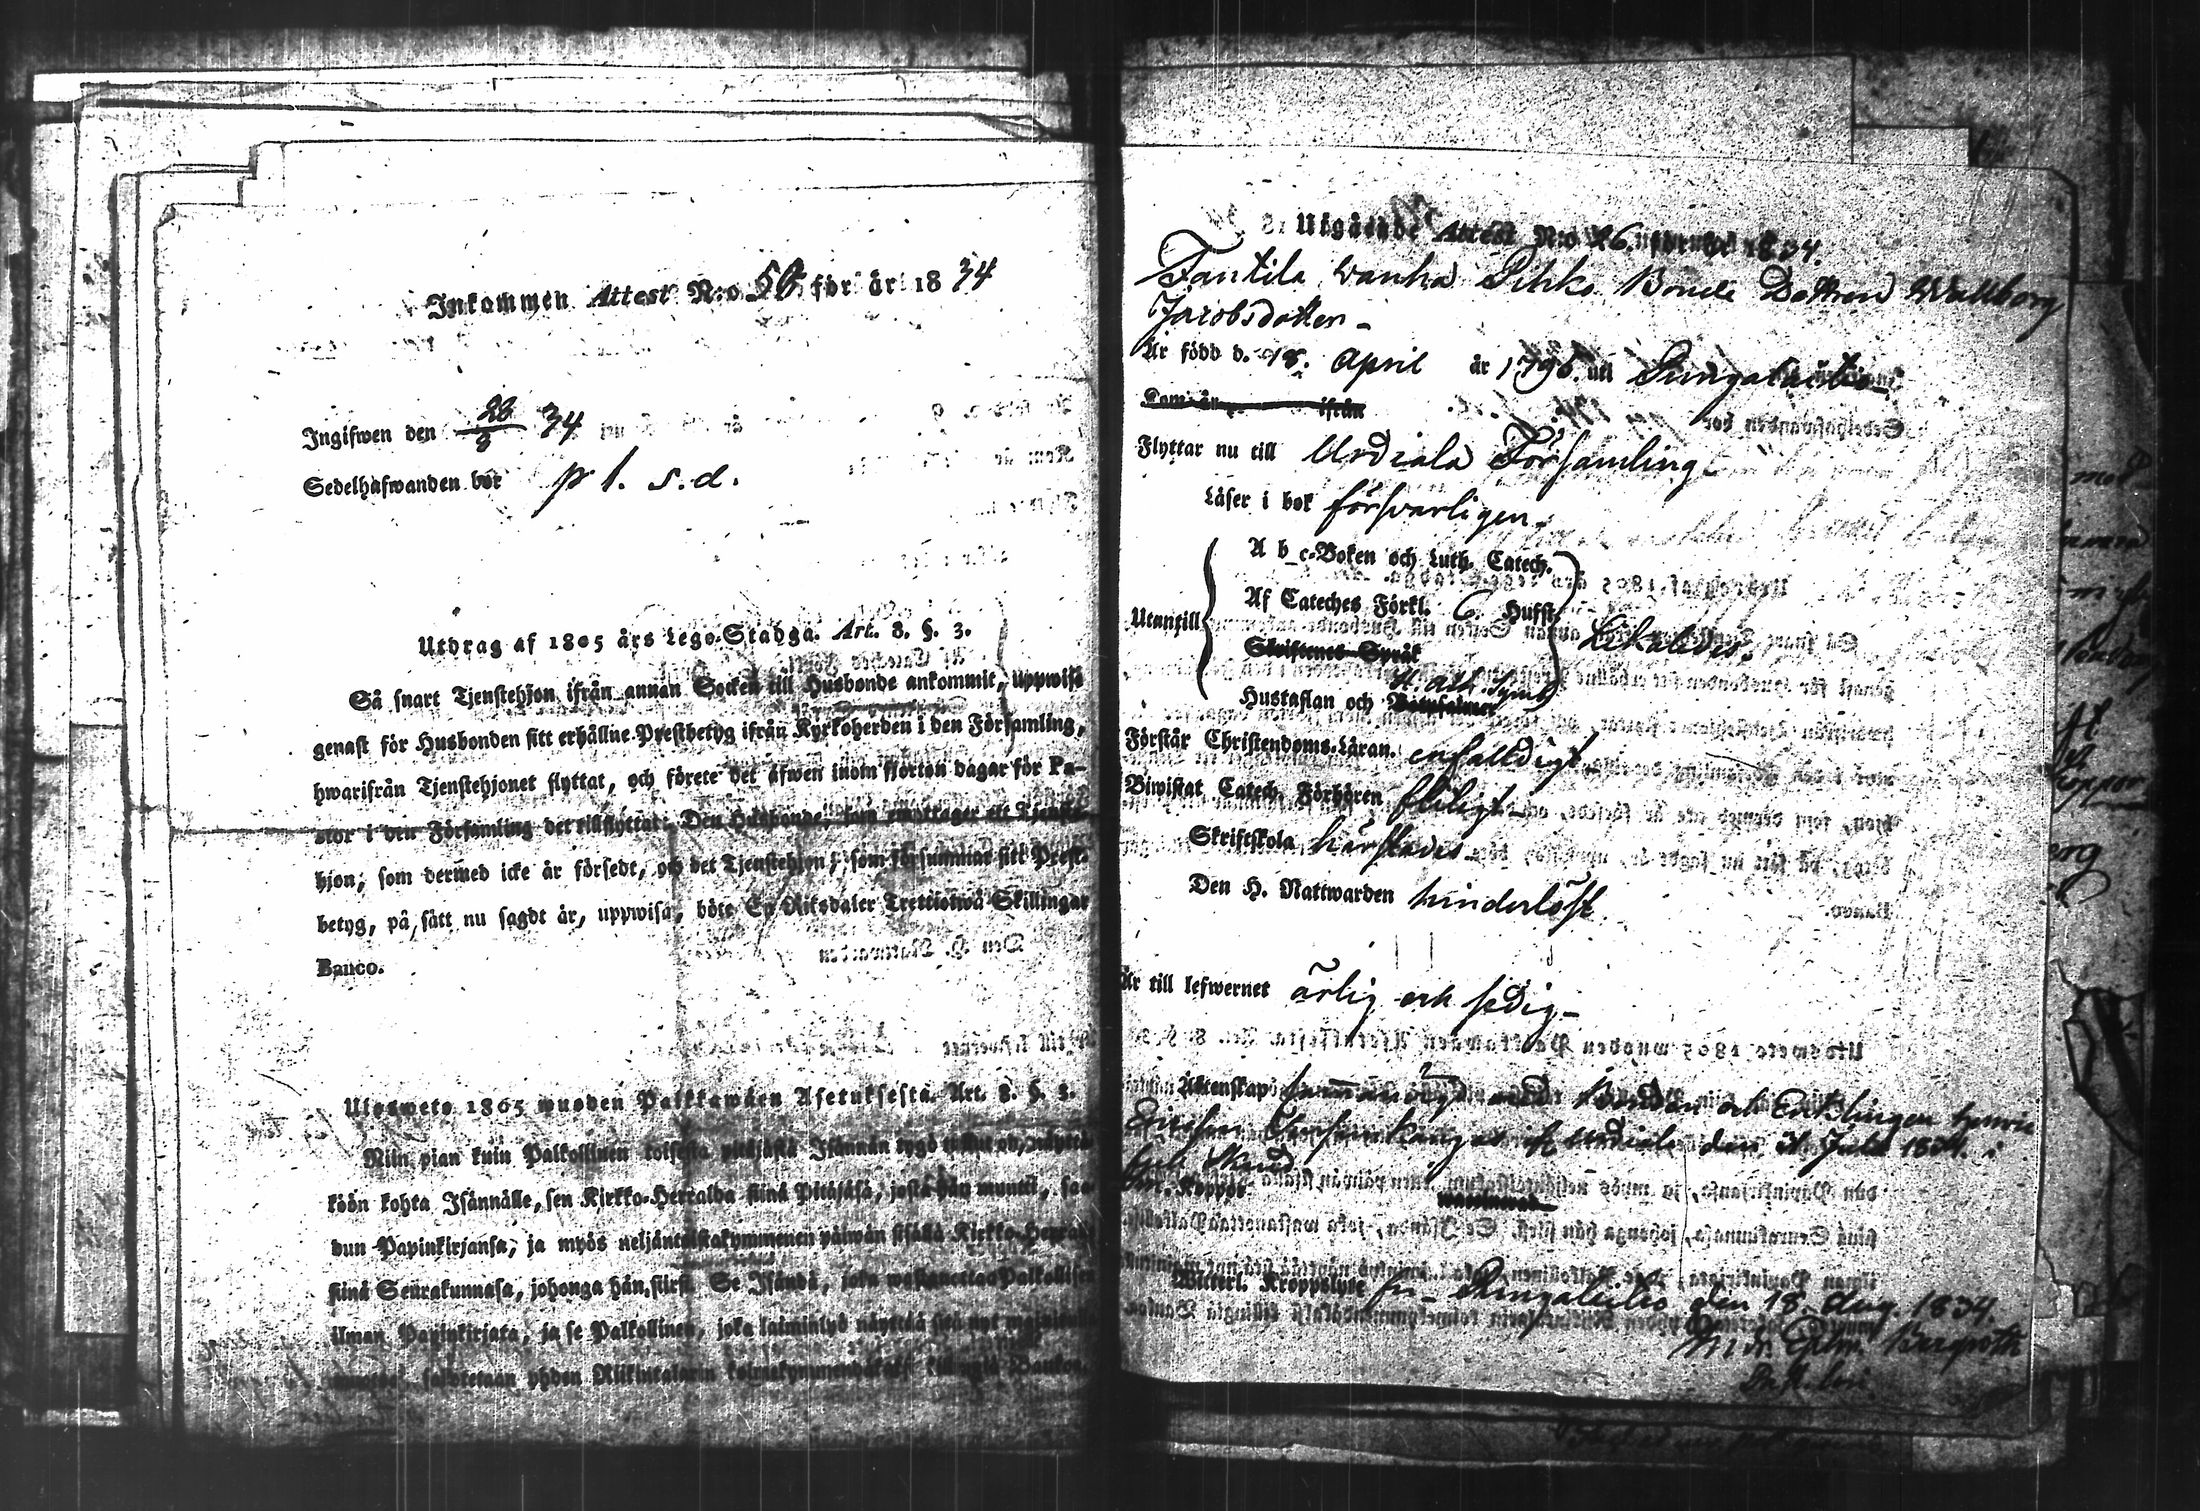 Inkommen Attest N:o 56 för år 1834
Ingifwen den 28/9 34
Sedelhafwanden bor p l. s. d.
Utdrag af 1805 års Lego-Stadga. Art. 8. §. 3.
Så snart Tjenstehjon ifrån annan Socken till Husbonde ankommit, uppwise
genast för Husbonden sitt erhållne Prestbetyg ifrån Kyrkoherden i den Församling,
hwarifrån Tjenstehjonet flyttat, och förete det äfwen inom fjorton dagar för Pa-
stor i den Församling det tillflyttat. Den Husbonde, som emottager ett Tjenste-
hjon, som dermed icke är försedt, och det Tjenstehjon, som försummar sitt Prest-
betyg, på sätt nu sagdt är, uppwisa, böte En Riksdaler Trettiotwå Skillingar
Banco.
Ulosweto 1805 wuoden Palkkawäen Asetuksesta. Art. 8. §. 3.
Niin pian kuin Palkollinen toisesta pitäjästä Isännän tygö tullut on, näyttä-
köön kohta Isännälle, sen Kirkko-Herralda siinä Pitäjäsä, josta hän muutti, saa-
dun Papinkirjansa, ja myös neljäntoistakymmenen päiwän sisällä Kirkko-Herralle
siinä Seurakunnasa, johonga hän siirsi. Se Isändä, joka wastanottaa Palkollisen
ilman Papinkirjata, ja se Palkollinen, joka laiminlyö näyttää sitä nyt
sakotetaan yhden Riikintalarin Killingiä Bankos.
Utgående Attest N:o 26 för år 1834.
Tantila wanha Pihko Bonde Dottren Wallborg
Jacobsdotter
Är född d. 18. April år 1795 uti Pungalaitio
Kom år ifrån
Flyttar nu till Urdiala Församling
Läser i bok försvarligen
Utantill
A b c-Boken och Luth. Catech.
Af Cateches Förkl. 6. Hufst.
Skriftenes Språk
Hustaflan och Ath. Symb.
Likaledes.
Förstår Christendoms-Läran enfalldigt
Biwistat Catech. Förhören fliligt
Skriftskola härstädes
Den H. Nattwarden hinderlöst
Är till lefwernet ärlig och sedig
Äktenskap med Bonden och Enklingen Henric
Ericsson af Urdiala den Juli 1834. i
Koppor
Witterl. Kroppslyte fri Pungalaitio den 18 Aug. 1834.
Bergroth